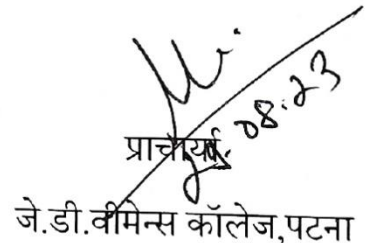 08.23
प्राचार्या
जे.डी.वीमेन्स कॉलेज,पटना